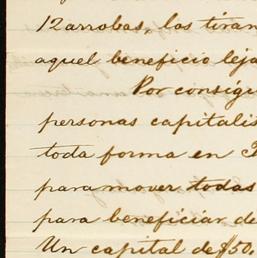 12 arrobas, las tiran
aquel beneficio leja
Por consigui
personas capitalis
toda forma en
para mover todas
para beneficiar de
Un capital de $50.